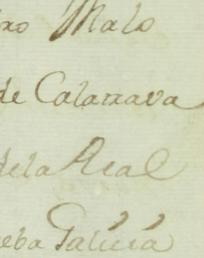 ro Malo
de Calatrava
dela Real
eba Galicia